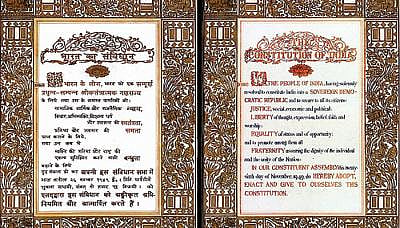 भारत का संविधान
भारत के लोग, भारत को एक सम्पूर्ण
प्रभुत्व-सम्पन्न लोकतंत्रात्मक गणराज्य
के लिये, तथा उस के समस्त नागरिकों को :
सामाजिक, आर्थिक और राजनैतिक न्याय,
विचार, अभिव्यक्ति, विश्वास, धर्म
और उपासना की स्वतंत्रता,
प्रतिष्ठा और अवसर की समता
प्राप्त कराने के लिये,
तथा उन सब में
व्यक्ति की गरिमा और राष्ट्र की
एकता सुनिश्चित करने वाली बन्धुता
बढ़ाने के लिये
दृढ़ संकल्प हो कर अपनी इस संविधान सभा में
आज तारीख २६ नवम्बर १९४९ ई० (मिति मार्गशीर्ष
शुक्ला सप्तमी, संवत् दो हजार छह विक्रमी) को
एतद्द्वारा इस संविधान को अंगीकृत, अधि-
नियमित और आत्मार्पित करते हैं।
THE
CONSTITUTION OF INDIA
WE, THE PEOPLE OF INDIA, having solemnly
resolved to constitute India into a SOVEREIGN DEMO-
CRATIC REPUBLIC and to secure to all its citizens:
JUSTICE, social, economic and political;
LIBERTY of thought, expression, belief, faith and
worship;
EQUALITY of status and of opportunity;
and to promote among them all
FRATERNITY assuring the dignity of the individual
and the unity of the Nation;
IN OUR CONSTITUENT ASSEMBLY this twenty-
sixth day of November, 1949, do HEREBY ADOPT,
ENACT AND GIVE TO OURSELVES THIS
CONSTITUTION.